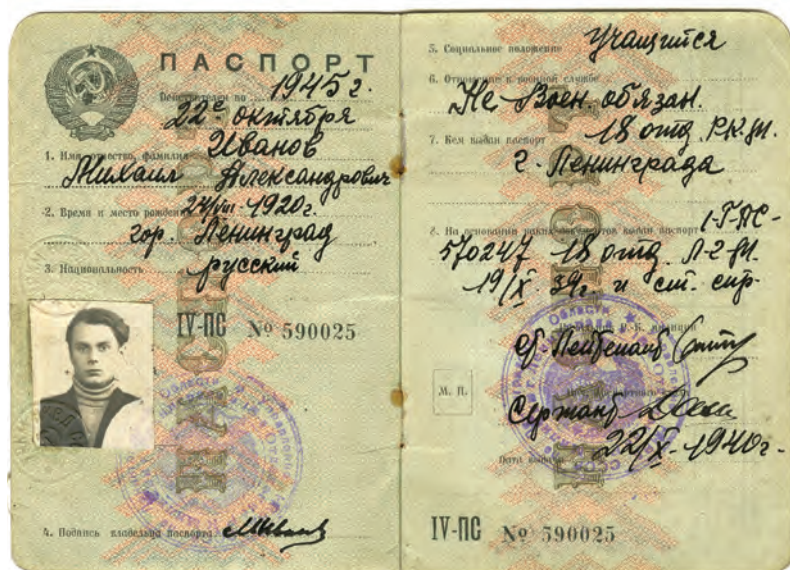 ПАСПОРТ
Действителен по 1945 г.
22го октября
1. Имя, отчество, фамилия Иванов
Михаил Александрович
2. Время и место рождения 24/VIII-1920 г.
гор. Ленинград
3. Национальность русский
IV-ПС № 590025
4. Подпись владельца паспорта
5. Социальное положение Учащийся
6. Отношение к военной службе
Не воен. обязан.
7. Кем выдан паспорт 18 отд. Р.К.М.
г. Ленинграда
8. На основании каких документов выдан паспорт
570247 18 отд. Л-г-М.
19/X-39г. и
Лейтенант
М. П.
Сержант
Дата выдачи 22/X-1940 г.
IV-ПС № 590025